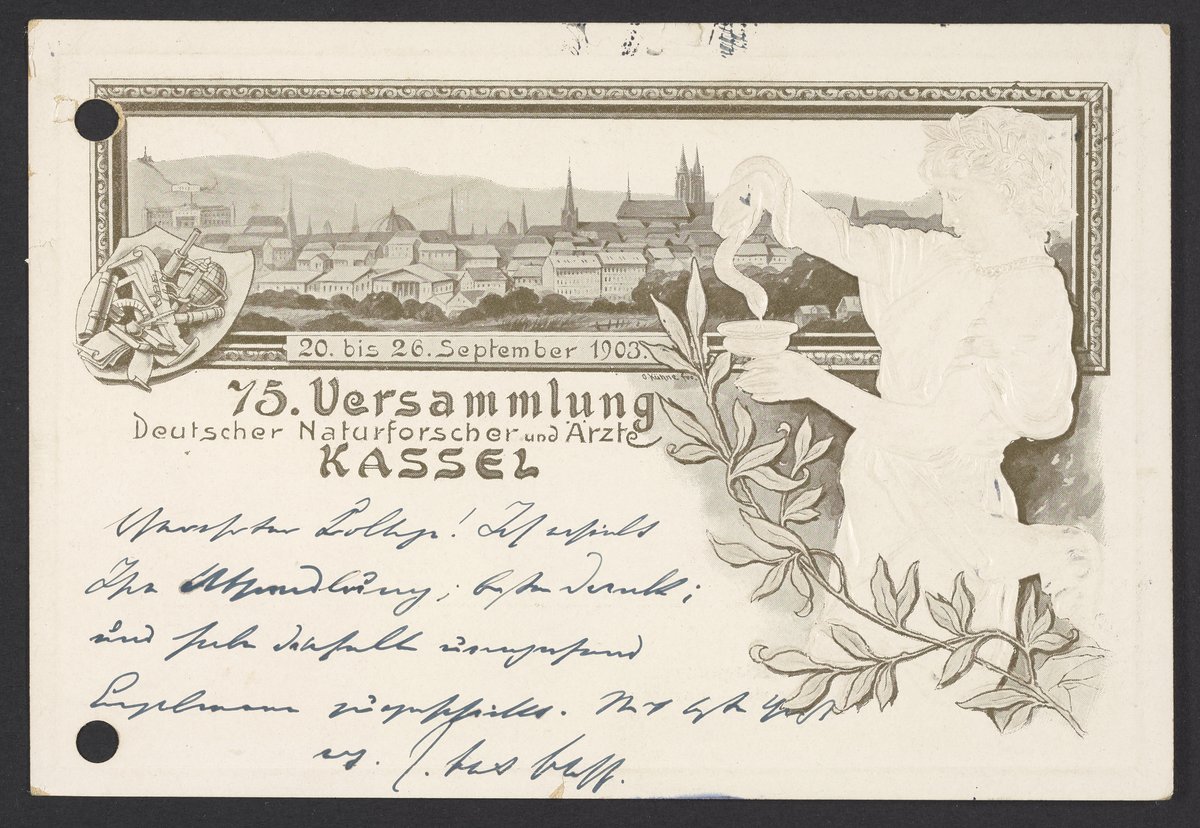 20. bis 26. September 1903.
O. Kühne fec.
75. Versammlung
Deutscher Naturforscher und Ärzte
KASSEL
Verehrter College! Ich erhielt
Ihre Abhandlung; besten Dank;
und habe dieselbe umgehend
Engelmann zugeschickt. Mit besten Gruß